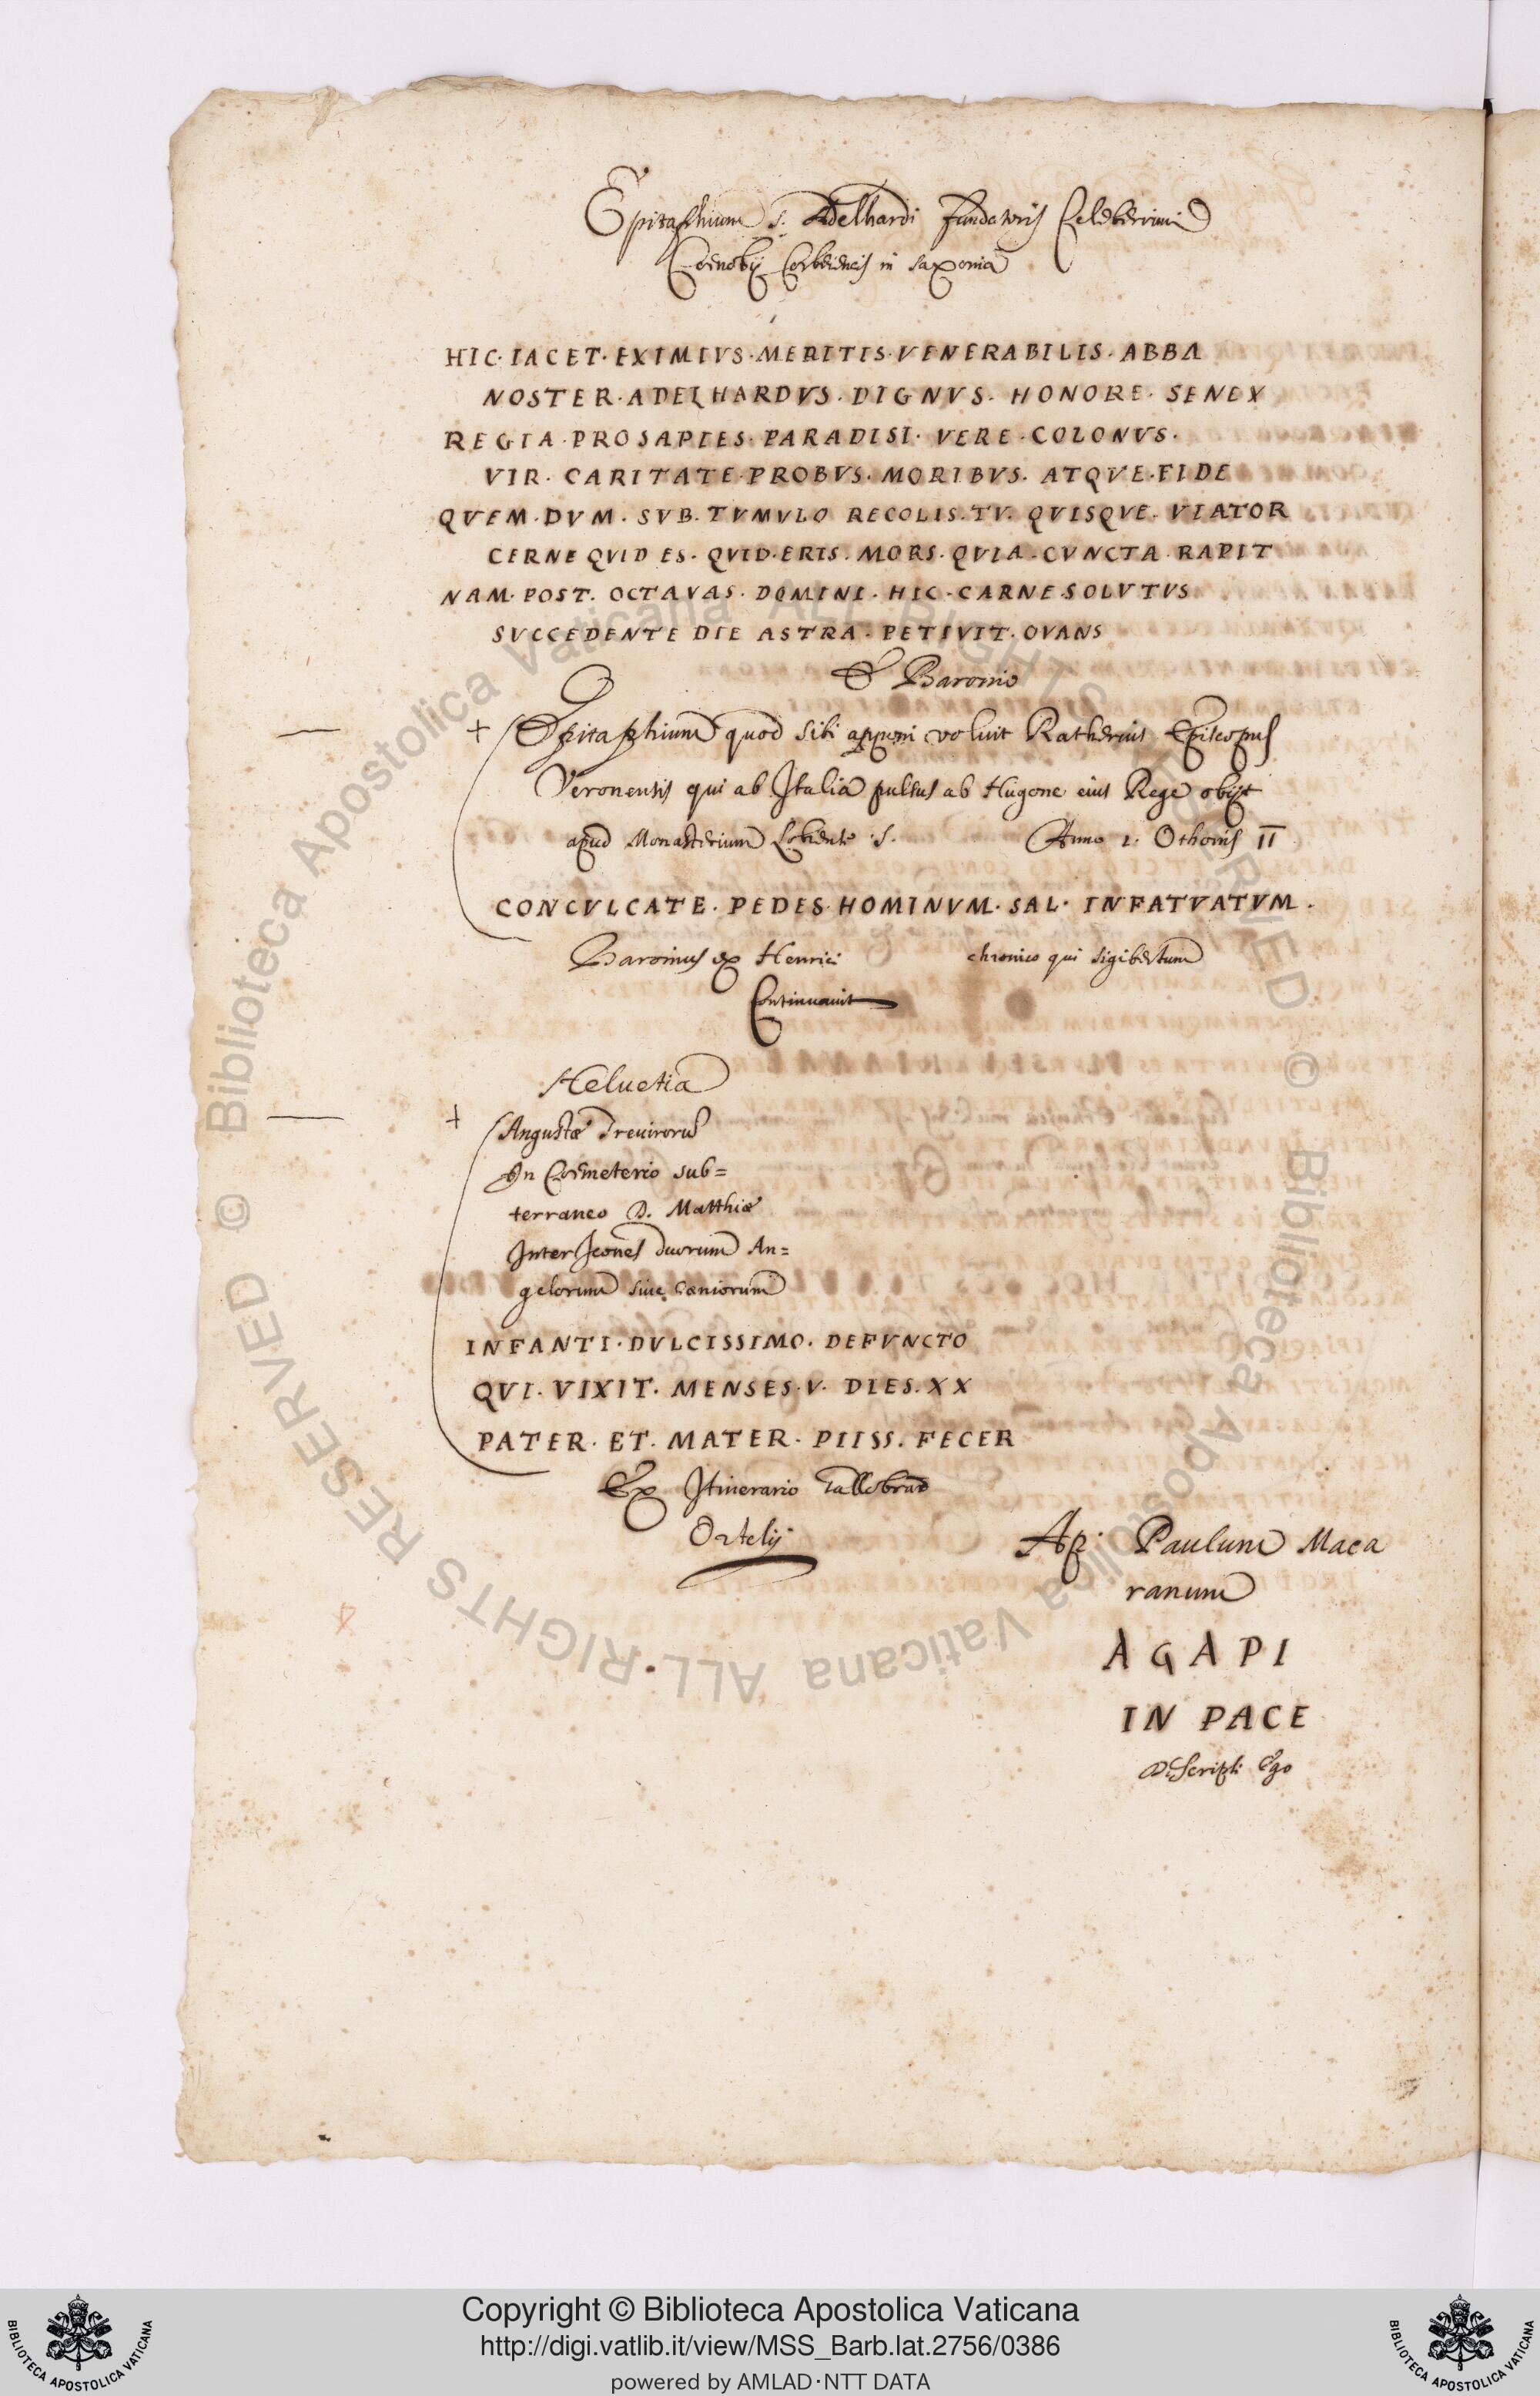 Epitaphium S. Adelhardi fundatoris Celeberrimi
Coenobij Corbeiensis in Saxonia
HIC·IACET·EXIMIVS·MERITIS·VENERABILIS·ABBA
NOSTER·ADELHARDVS·DIGNVS·HONORE·SENEX
REGIA·PROSAPIES·PARADISI·VERE·COLONVS·
VIR·CARITATE·PROBVS·MORIBVS·ATQVE·FIDE
QVEM·DVM·SVB·TVMVLO RECOLIS·TV·QVISQVE·VIATOR
CERNE QVID ES·QVID·ERIS·MORS·QVIA·CVNCTA·RAPIT
NAM·POST·OCTAVAS·DOMINI·HIC·CARNE SOLVTVS
SVCCEDENTE DIE ASTRA·PETIVIT·OVANS
Baronio
+ Epitaphium quod sibi apponi voluit Ratherius Episcopus
Veronensis qui ab Italia pulsus ab Hugone eius Rege obijt
apud Monasterium Lobiense S. Anno 1. Othonis II
CONCVLCATE·PEDES HOMINVM·SAL·INFATVATVM·
Baronius ex Henrici chronico qui Sigibertum
Continuauit
Heluetia
+ Augustæ Treuirorū
In Coemeterio sub=
terraneo D. Matthiæ
Inter Icones duorum An=
gelorum siue Geniorum
INFANTI·DVLCISSIMO·DEFVNCTO
QVI·VIXIT·MENSES·V·DIES·XX
PATER·ET·MATER·PIISS·FECER
Ex Itinerario Gallobrab
Ortelij
Ap. Paulum Maca
ranum
AGAPI
IN PACE
Descripsi Ego
© Biblioteca Apostolica Vaticana ALL RIGHTS RESERVED © Biblioteca Apostolica Vaticana ALL RIGHTS RESERVED
Copyright © Biblioteca Apostolica Vaticana
http://digi.vatlib.it/view/MSS_Barb.lat.2756/0386
powered by AMLAD·NTT DATA
BIBLIOTECA APOSTOLICA VATICANA
BIBLIOTECA APOSTOLICA VATICANA